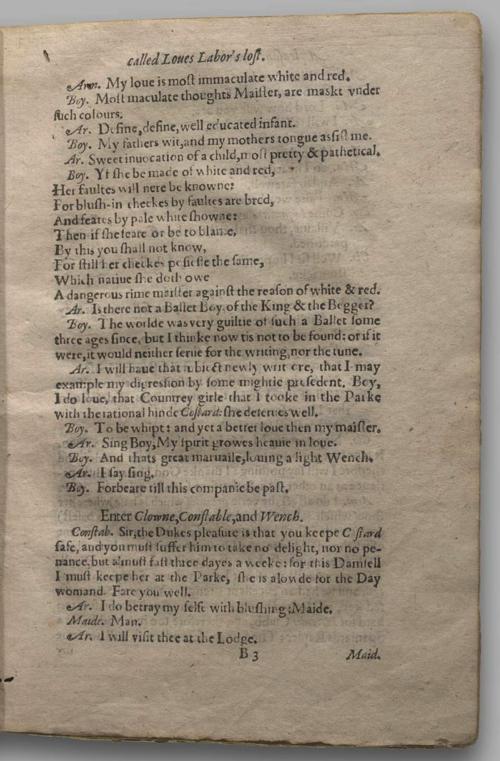 called Loues Labor's lost.
Arm. My loue is most immaculate white and red.
Boy. Most maculate thoughts Maister, are maskt vnder
such colours.
Ar. Define, define, well educated infant.
Boy. My fathers wit, and my mothers tongue assist me.
Ar. Sweet inuocation of a child, most pretty & pathetical.
Boy. Yf she be made of white and red,
Her faultes will nere be knowne:
For blush-in cheekes by faultes are bred,
And feares by pale white showne:
Then if she feare or be to blame,
By this you shall not know,
For still her cheekes possesse the same,
Which natiue she doth owe
A dangerous rime maister against the reason of white & red.
Ar. Is there not a Ballet Boy, of the King & the Begger?
Boy. The worlde was very guiltie of such a Ballet some
three ages since, but I thinke now tis not to be found: or if it
were, it would neither serue for the writing, nor the tune.
Ar. I will haue that subiect newly writ ore, that I may
example my digression by some mightie presedent. Boy,
I do loue, that Countrey girle that I tooke in the Parke
with the rational hinde Costard: she deserues well.
Boy. To be whipt: and yet a better loue then my maister.
Ar. Sing Boy, My spirit growes heauie in loue.
Boy. And thats great maruaile, louing a light Wench.
Ar. I say sing.
Boy. Forbeare till this companie be past.
Enter Clowne, Constable, and Wench.
Constab. Sir, the Dukes pleasure is that you keepe Costard
safe, and you must suffer him to take no delight, nor no pe-
nance, but a'must fast three dayes a weeke: for this Damsell
I must keepe her at the Parke, she is alowde for the Day
womand. Fare you well.
Ar. I do betray my selfe with blushing: Maide.
Maide. Man.
Ar. I will visit thee at the Lodge.
B 3 Maid.